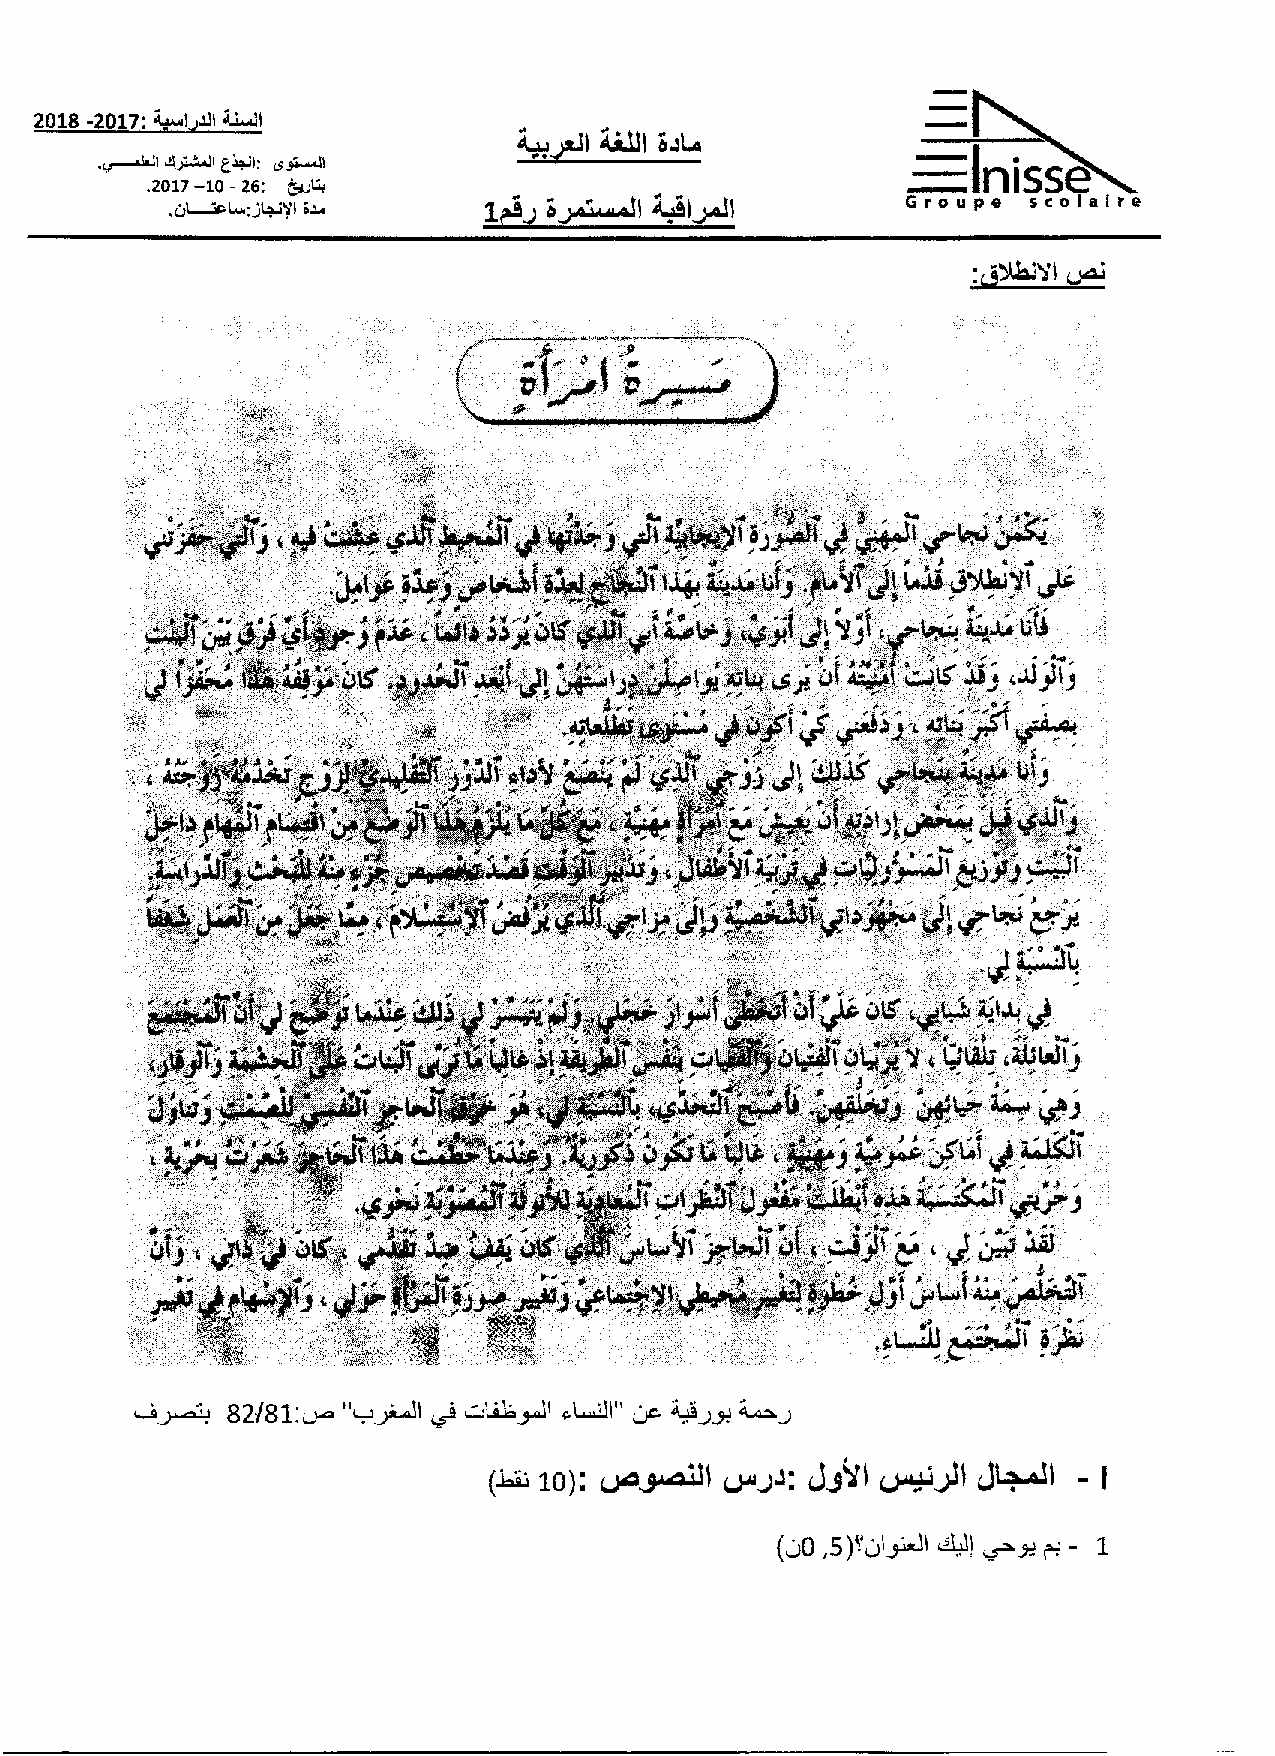 السنة الدراسية :2017- 2018
مادة اللغة العربية
المستوى :الجذع المشترك العلمـــي.
بتاريخ :26 - 10– 2017.
مدة الإنجاز:ساعتـــان.
المراقبة المستمرة رقم1
Enisse
Groupe scolaire
نص الانطلاق:
مَسِيرَةُ امْرَأَةٍ
يَكْمُنُ نَجاحي ٱلْمِهَنِيُّ في ٱلصُّورَةِ ٱلإيجابِيَّةِ ٱلَّتي وَجَدْتُها في ٱلْمُحيطِ ٱلَّذي عِشْتُ فيهِ ، وَٱلَّتي حَفَزَتْني
عَلى ٱلانْطِلاقِ قُدُماً إلى ٱلأمامِ. وَأَنا مَدينَةٌ بِهَذا ٱلنَّجاحِ لِعِدَّةِ أَشْخاصٍ وَعِدَّةِ عَوامِلَ.
فَأَنا مَدينَةٌ بِنَجاحي، أَوَّلاً إلى أَبَوَيَّ، وَخاصَّةً أَبي ٱلَّذي كانَ يُرَدِّدُ دائِماً، عَدَمَ وُجودِ أَيِّ فَرْقٍ بَيْنَ ٱلْبِنْتِ
وَٱلْوَلَدِ، وَقَدْ كانَتْ أُمْنِيَّتُهُ أَنْ يَرى بَناتِهِ يُواصِلْنَ دِراسَتَهُنَّ إلى أَبْعَدِ ٱلْحُدودِ. كانَ مَوْقِفُهُ هَذا مُحَفِّزاً لي
بِصِفَتي أَكْبَرَ بَناتِهِ ، وَدَفَعَني كَيْ أَكونَ في مُسْتَوى تَطَلُّعاتِهِ.
وَأَنا مَدينَةٌ بِنَجاحي كَذَلِكَ إلى زَوْجي ٱلَّذي لَمْ يَنْصَعْ لأداءِ ٱلدَّوْرِ ٱلتَّقْليدِيِّ لِزَوْجٍ تَخْدُمُهُ زَوْجَتُهُ ،
وَٱلَّذي قَبِلَ بِمَحْضِ إرادَتِهِ أَنْ يَعيشَ مَعَ ٱمْرَأَةٍ مِهَنِيَّةٍ ، مَعَ كُلِّ ما يَلْزَمُ هَذا ٱلْوَضْعَ مِنِ ٱقْتِسامِ ٱلْمَهامِّ داخِلَ
ٱلْبَيْتِ وَتَوْزيعِ ٱلْمَسْؤولِيَّاتِ في تَرْبِيَةِ ٱلأطْفالِ ، وَتَدْبيرِ ٱلْوَقْتِ قَصْدَ تَخْصيصِ جُزْءٍ مِنْهُ لِلْبَحْثِ وَٱلدِّراسَةِ.
يَرْجِعُ نَجاحي إلى مَجْهوداتي ٱلشَّخْصِيَّةِ وَإلى مِزاجي ٱلَّذي يَرْفُضُ ٱلاسْتِسْلامَ، مِمَّا جَعَلَ مِنَ ٱلْعَمَلِ شَغَفاً
بِٱلنِّسْبَةِ لي.
في بِدايَةِ شَبابي، كانَ عَلَيَّ أَنْ أَتَخَطَّى أَسْوارَ خَجَلي. وَلَمْ يَتَيَسَّرْ لي ذَلِكَ عِنْدَما تَوَضَّحَ لي أَنَّ ٱلْمُجْتَمَعَ
وَٱلْعائِلَةَ، تِلْقائِيّاً ، لا يُرَبِّيانِ ٱلْفِتْيانَ وَٱلْفَتَياتِ بِنَفْسِ ٱلطَّريقَةِ إذْ غالِباً ما تُرَبَّى ٱلْبَناتُ عَلى ٱلْحِشْمَةِ وَٱلْوَقارِ،
وَهِيَ سِمَةُ حَيائِهِنَّ وَتَخَلُّقِهِنَّ. فَأَصْبَحَ ٱلتَّحَدِّي، بِٱلنِّسْبَةِ لي، هُوَ خَرْقَ ٱلْحاجِزِ ٱلنَّفْسِيِّ لِلصَّمْتِ وَتَناوُلَ
ٱلْكَلِمَةِ في أَماكِنَ عُمومِيَّةٍ وَمِهَنِيَّةٍ ، غالِباً ما تَكونُ ذُكورِيَّةً. وَعِنْدَما حَطَّمْتُ هَذا ٱلْحاجِزَ شَعَرْتُ بِحُرِّيَّةٍ ،
وَحُرِّيَّتي ٱلْمُكْتَسَبَةُ هَذِهِ أَبْطَلَتْ مَفْعولَ ٱلنَّظَراتِ ٱلْمُعادِيَةِ لِلأُنوثَةِ ٱلْمُصَوَّبَةِ نَحْوي.
لَقَدْ تَبَيَّنَ لي ، مَعَ ٱلْوَقْتِ ، أَنَّ ٱلْحاجِزَ ٱلأساسَ ٱلَّذي كانَ يَقِفُ ضِدَّ تَقَدُّمي ، كانَ في داخِلي ، وَأَنَّ
ٱلتَّخَلُّصَ مِنْهُ أَساسُ أَوَّلِ خُطْوَةٍ لِتَغْييرِ مُحيطي ٱلاجْتِماعِيِّ وَتَغْييرِ صورَةِ ٱلْمَرْأَةِ حَوْلي ، وَٱلإسْهامِ في تَغْييرِ
نَظْرَةِ ٱلْمُجْتَمَعِ لِلنِّساءِ.
رحمة بورقية عن "النساء الموظفات في المغرب" ص:82/81 بتصرف
I - المجال الرئيس الأول: درس النصوص :(10 نقط)
1 - بم يوحي إليك العنوان؟(0,5ن)